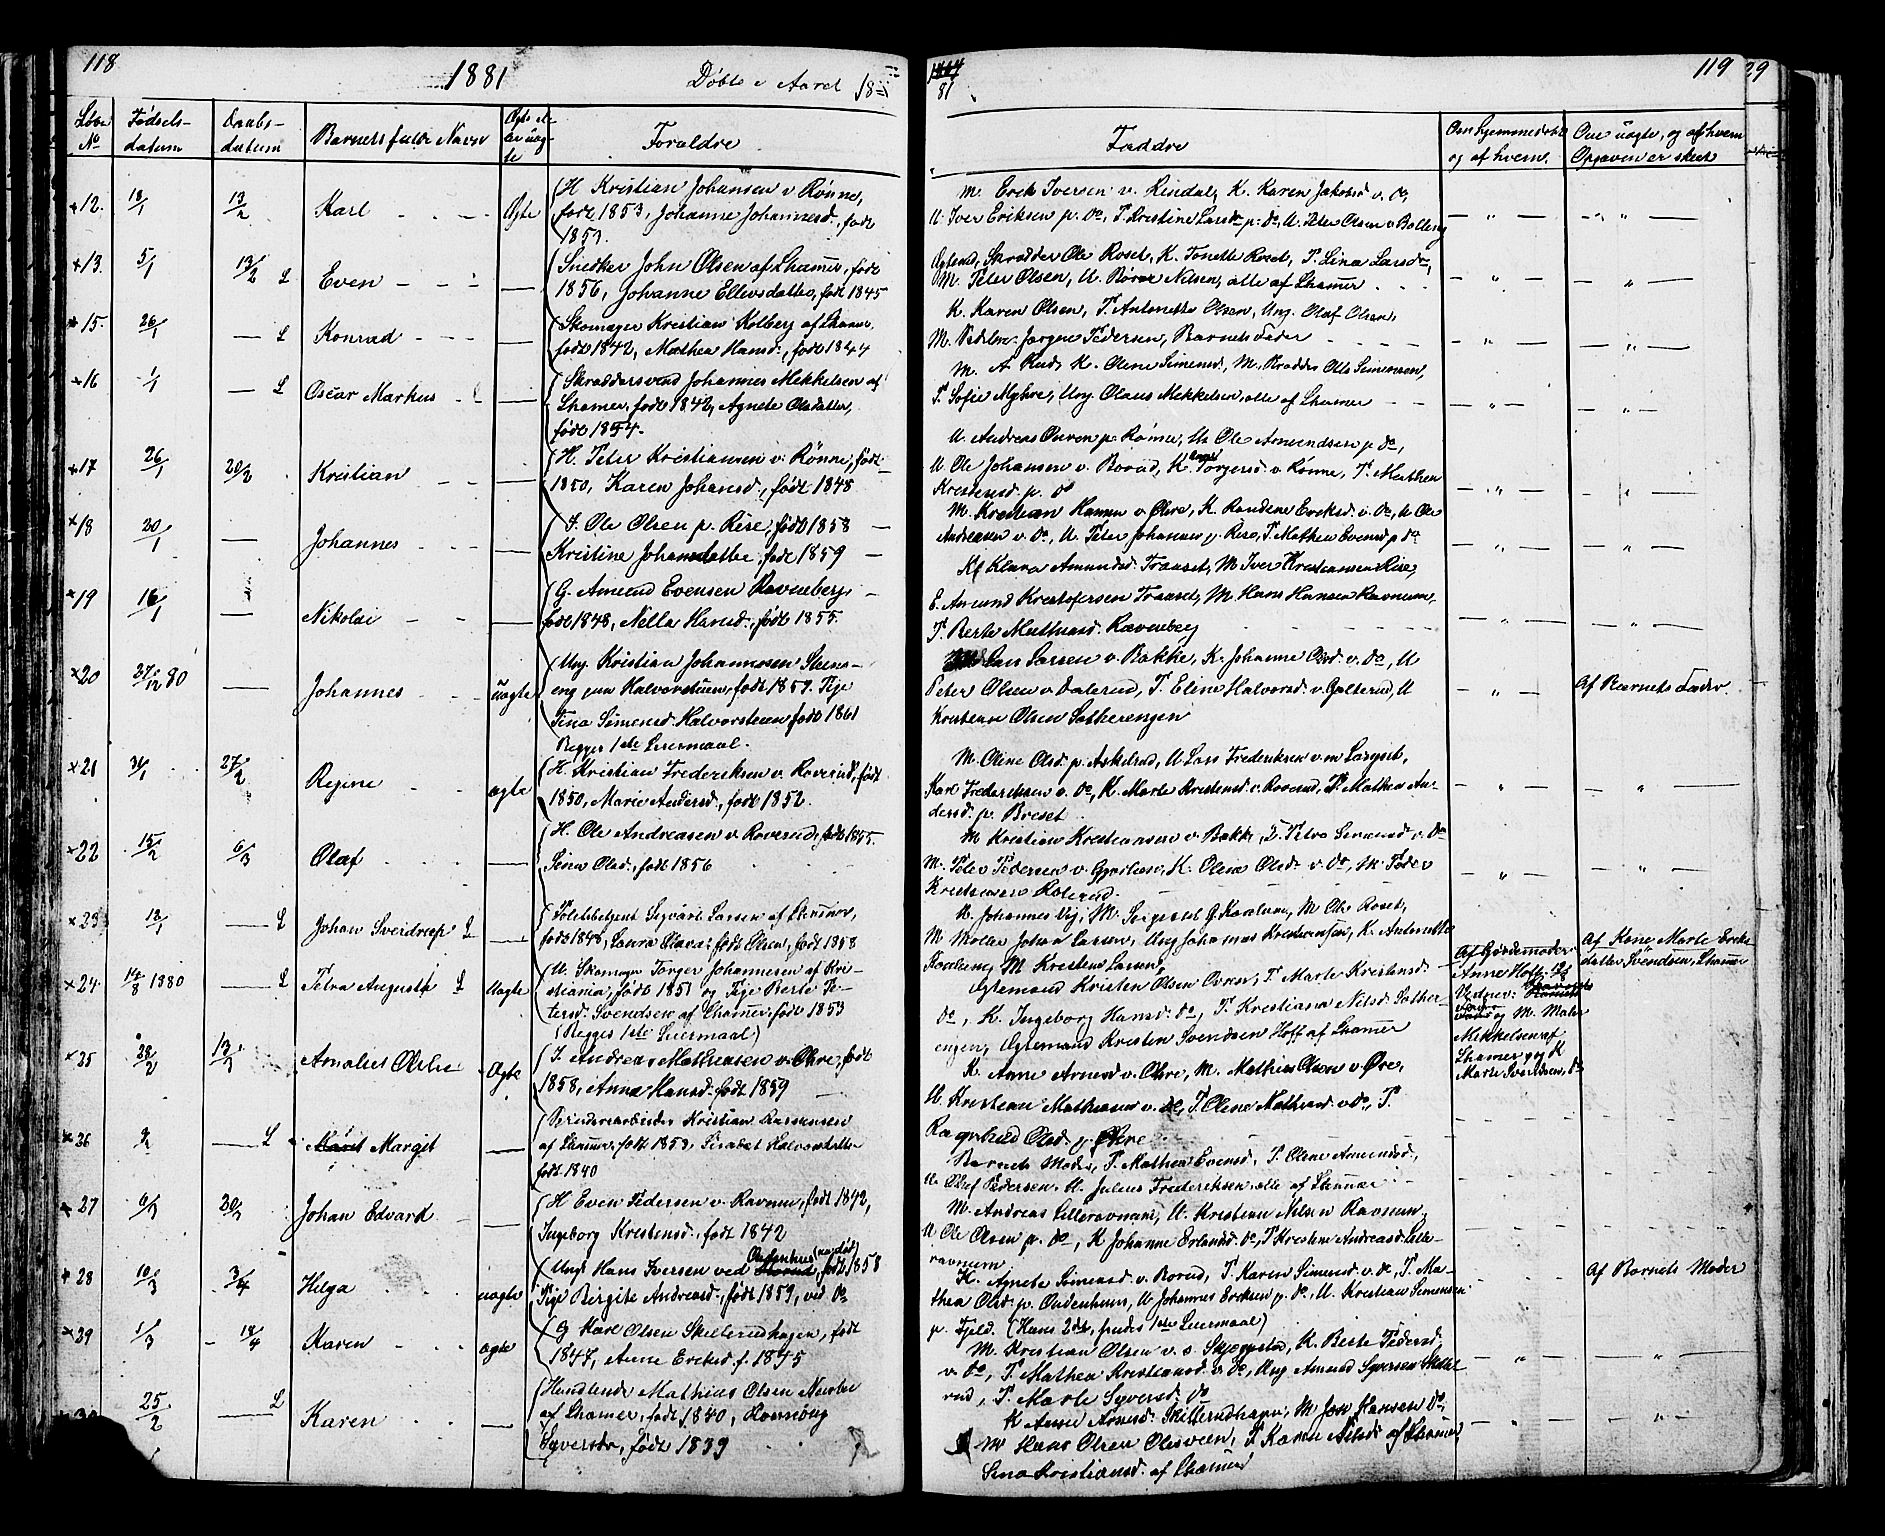 118
1881 Döbte i Aaret 18
Löbe No Födsels- datum Daabs- datum Barnets fulde Navn Ægte el- ler uæg- te Forældre
+12. 13/1 13/2 Karl Ægte H. Kristian Johansen v. Rönne,
født 1853, Johanne Johannesd., født
1853.
+13. 5/1 13/2 L Even — Snedker John Olsen af Lhamer, født
1856, Johanne Ellevsdatter, født 1845
+15. 26/1 — L Konrad — Skomager Kristian Kolberg af Lhamer,
født 1842, Mathea Hansd., født 1844
+16 1/1 — L Oscar Markus — Skræddersvend Johannes Mikkelsen af
Lhamer, født 1842, Agnete Olsdatter,
født 1854.
+17 26/1 20/2 Kristian — H. Peter Kristiansen v. Rönne, født
1850, Karen Johansd., født 1848
+18 20/1 — Johannes — I. Ole Olsen p. Rise, født 1858
Kristine Johansdatter, født 1859
+19 16/1 — Nikolai — G. Amund Evensen Ravneberg,
født 1848, Nella Hansd., født 1855.
+20 27/12 80 — Johannes uægte Ung. Kristian Johannesen Steens-
eng paa Halvorstuen, født 1859. Pige
Tina Simensd. Halvorstuen født 1861
Begges 1ste Leiermaal.
+21 31/1 27/2 Regine ægte H. Kristian Frederiksen v. Roverud, født
1850, Marie Andersd., født 1852.
+22 15/2 6/3 Olaf — H. Ole Andreasen v. Roverud, født 1855.
Lina Olsd., født 1856
+23 13/1 — L Johan Sverdrup L — Politibetjent Sigvart Larsen af Lhamer,
født 1848, Laura Olava født Olsen, født 1858
+24 14/8 1880 — L Petra Augusta L Uægte U. Skomager Torger Johannesen af Kri-
stiania, født 1851 og Pige Berte Pe-
tersd. Svendsen af Lhamer, født 1853
(Begges 1ste Leiermaal)
25 28/2 13/3 Arnalius Olelie Ægte I. Andreas Mathiasen v. Øvre, født
1858, Anna Hansd. født 1859
26 — L Margit — Kristian Rasmussen
af Lhamer, født 1853, Halvorsdatter
født 1840
+27 6/3 20/3 Johan Edvard — H Even Pedersen v. Ravnum, født 1842,
Ingeborg Kristensd., født 1842
+28 10/3 3/4 Helga uægte Ungk. Hans Iversen ved Oudenhus, født 1858
Pige Birgite Andreasd., født 1859, ved Do
+29 1/3 18/4 Karen ægte G Karl Olsen Skillerudhagen, født
1847, Anne Ericksd. f. 1845
25/2 — L Karen — Handlende Mathias Olsen
af Lhamer, født 1840, Rönnöug
Syversdr., født 1839
81
119
29
Faddre Om hjemmedøbt og af hvem. Om uægte, og af hvem Opgaven er skeet
M. Erik Iversen v. Lindal, K. Karen Jakobsd. v. Do,
U. Iver Eriksen p. Do, P. Kristine Larsdr p. Do, U. Peter Olsen v. Bolleng
Ogtemd, Skrædder Ole Roset, K. Tonette Roset, P. Lina Larsdr,
M. Peter Olsen, U. Börre Nilsen, alle af Lhamer
K. Karen Olsen, P. Antonette Olsen, Ung. Olaf Olsen,
M. Jørgen Pedersen, Barnets Fader
M. A. Rud, K. Olene Simensd., M. Olle Simensen,
P. Sofie Myhre, Ung. Olaus Mikkelsen, alle af Lhamer
U. Andreas p. Rønne, U. Ole Amundsen p. Do,
U Ole Johansen v. Borud, K. Torgersd. v. Rønne, P. Mathea
Kristensd. p. Do
M. Kristian Hansen v. Øvre, K. Randine Eriksd. v. Do, U Ole
Andreasen v. Do, U. Peter Johansen p. Rise, P. Mathea Evensd p Do
K. Klara Amundsd. Traaset, M. Iver Kristiansen Rise,
E. Amund Kristofersen Traaset, M. Hans Hansen Ravnum,
P. Berte Mathiasd. Ravneberg
Lars Larsen v. Bakke, K. Johanne Olsd. v. Do, U
Peter Olsen v. Dalerud, P. Eline Halvorsd. v. Galterud, U Af Barnets Fader.
Kristian Olsen Sætherengen
M. Oline Olsd. p. Askelrud, U Lars Frederiksen v.
Karl Frederiksen v. Do, K. Marte Kristensd. v. Roverud, P. Mathea An-
dersd. p. Breset
M Kristian Kristiansen v. Bakke, P. Petra Simensd. v. Do
M. Peter Pedersen v. K. Olina Olsd. v. Do, M. Peder
Kristiansen Roverud.
K. Johannes Vej, M. M Ole Roset,
M. Johan Larsen, Ung Johannes Kristiansen, K. Antonette
M Kristen Larsen,
Ogtemand Kristen Olsen P. Marte Kristensd.
Do, K. Ingeborg Hansd. Do, P. Kristiana Nilsd. Sæther-
engen, Ogtemand Kristen Svendsen Hoff af Lhamer
Af Gjordemoder
Anne Hoff
og M. Mater
Mikkelsen af
Lhamer og K
Marte Svendsen, Do
Af Kone Marte Eriks-
datter Svendsen, Lhamer
K. Anne Arnesd. v. Øvre, M. Mathias Olsen v. Øvre,
U. Kristian Mathiasen v. Do, P. Olene Mathiasd. v. Do, P.
Ragnhild Olsd. p. Øvre
Barnets Moder, P. Mathea Evensd., P. Oline Amundsd.,
U. Olaf Pedersen, U. Julius Frederiksen, alle af Lhamer
M. Andreas Lilleravnum, U. Kristian Nilsen Ravnum,
U Ole Olsen p. Do, K Johanne Erlandsd. Do, P Kristine Andreasd. Lille-
ravnum
K. Agnete Simensd. v. Borud, P. Karen Simensd. v. Do, P. Ma- Af Barnets Moder
thea Olsd. p. Oudenhuus, U Johannes Ericksen p. Do, U. Kristian Simensen
p. Fjeld. (Hans 2det, hendes 1ste Leiermaal)
M. Kristian Olsen v. s. Skjeppstad, K. Berte Pedersd.
v. Do, P. Mathea Kristiansd. v. Do, Ung Amund Syversen Skille-
rud, P. Marte Syversd. Do
K Anne Arnesd. Skillerudhagen, M. Jon Hansen Do,
M Hans Olsen Olesveen, P Karen Nilsd. af Lhamer,
Lina Kristiansd. af Lhamer